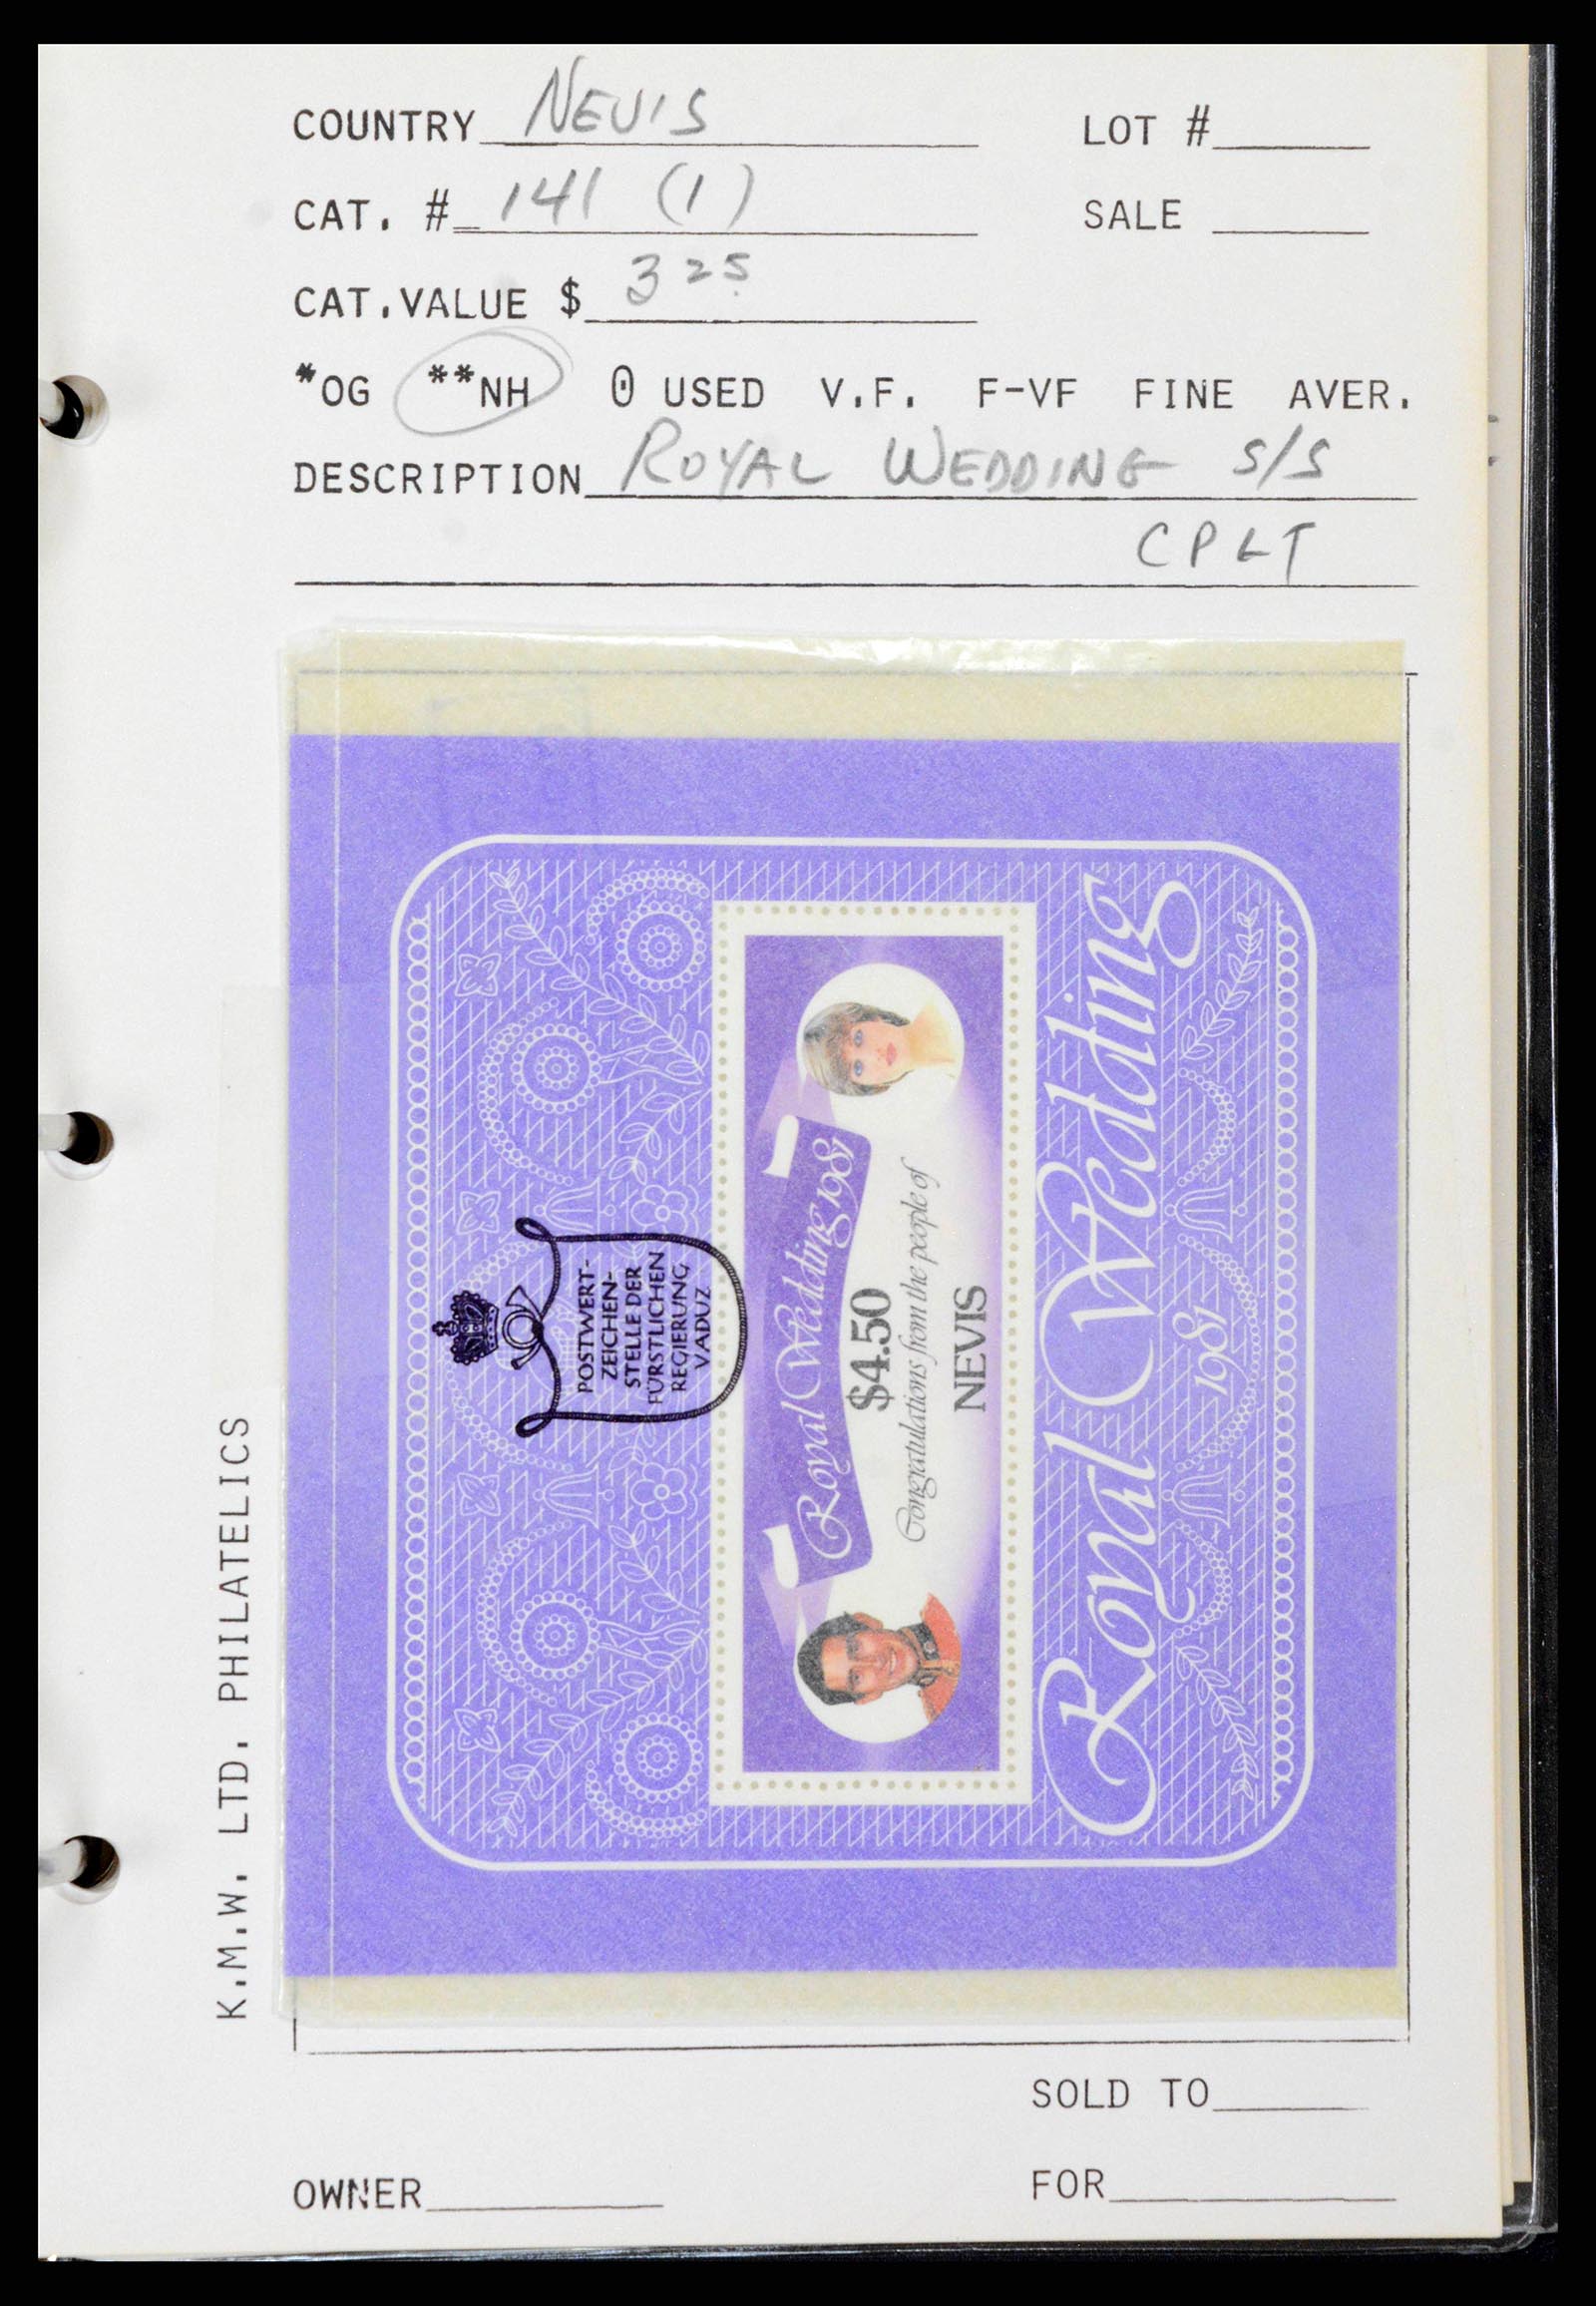 COUNTRY NEVIS
LOT #
CAT. # 141 (1)
SALE
CAT.VALUE $ 3 25
*OG **NH 0 USED V.F. F-VF FINE AVER.
DESCRIPTION ROYAL WEDDING S/S
CPLT
Royal Wedding 1981
$4.50
Congratulations from the people of
NEVIS
Royal Wedding
1981
POSTWERT-
ZEICHEN-
STELLE DER
FÜRSTLICHEN
REGIERUNG
VADUZ
K.M.W. LTD. PHILATELICS
SOLD TO
OWNER
FOR